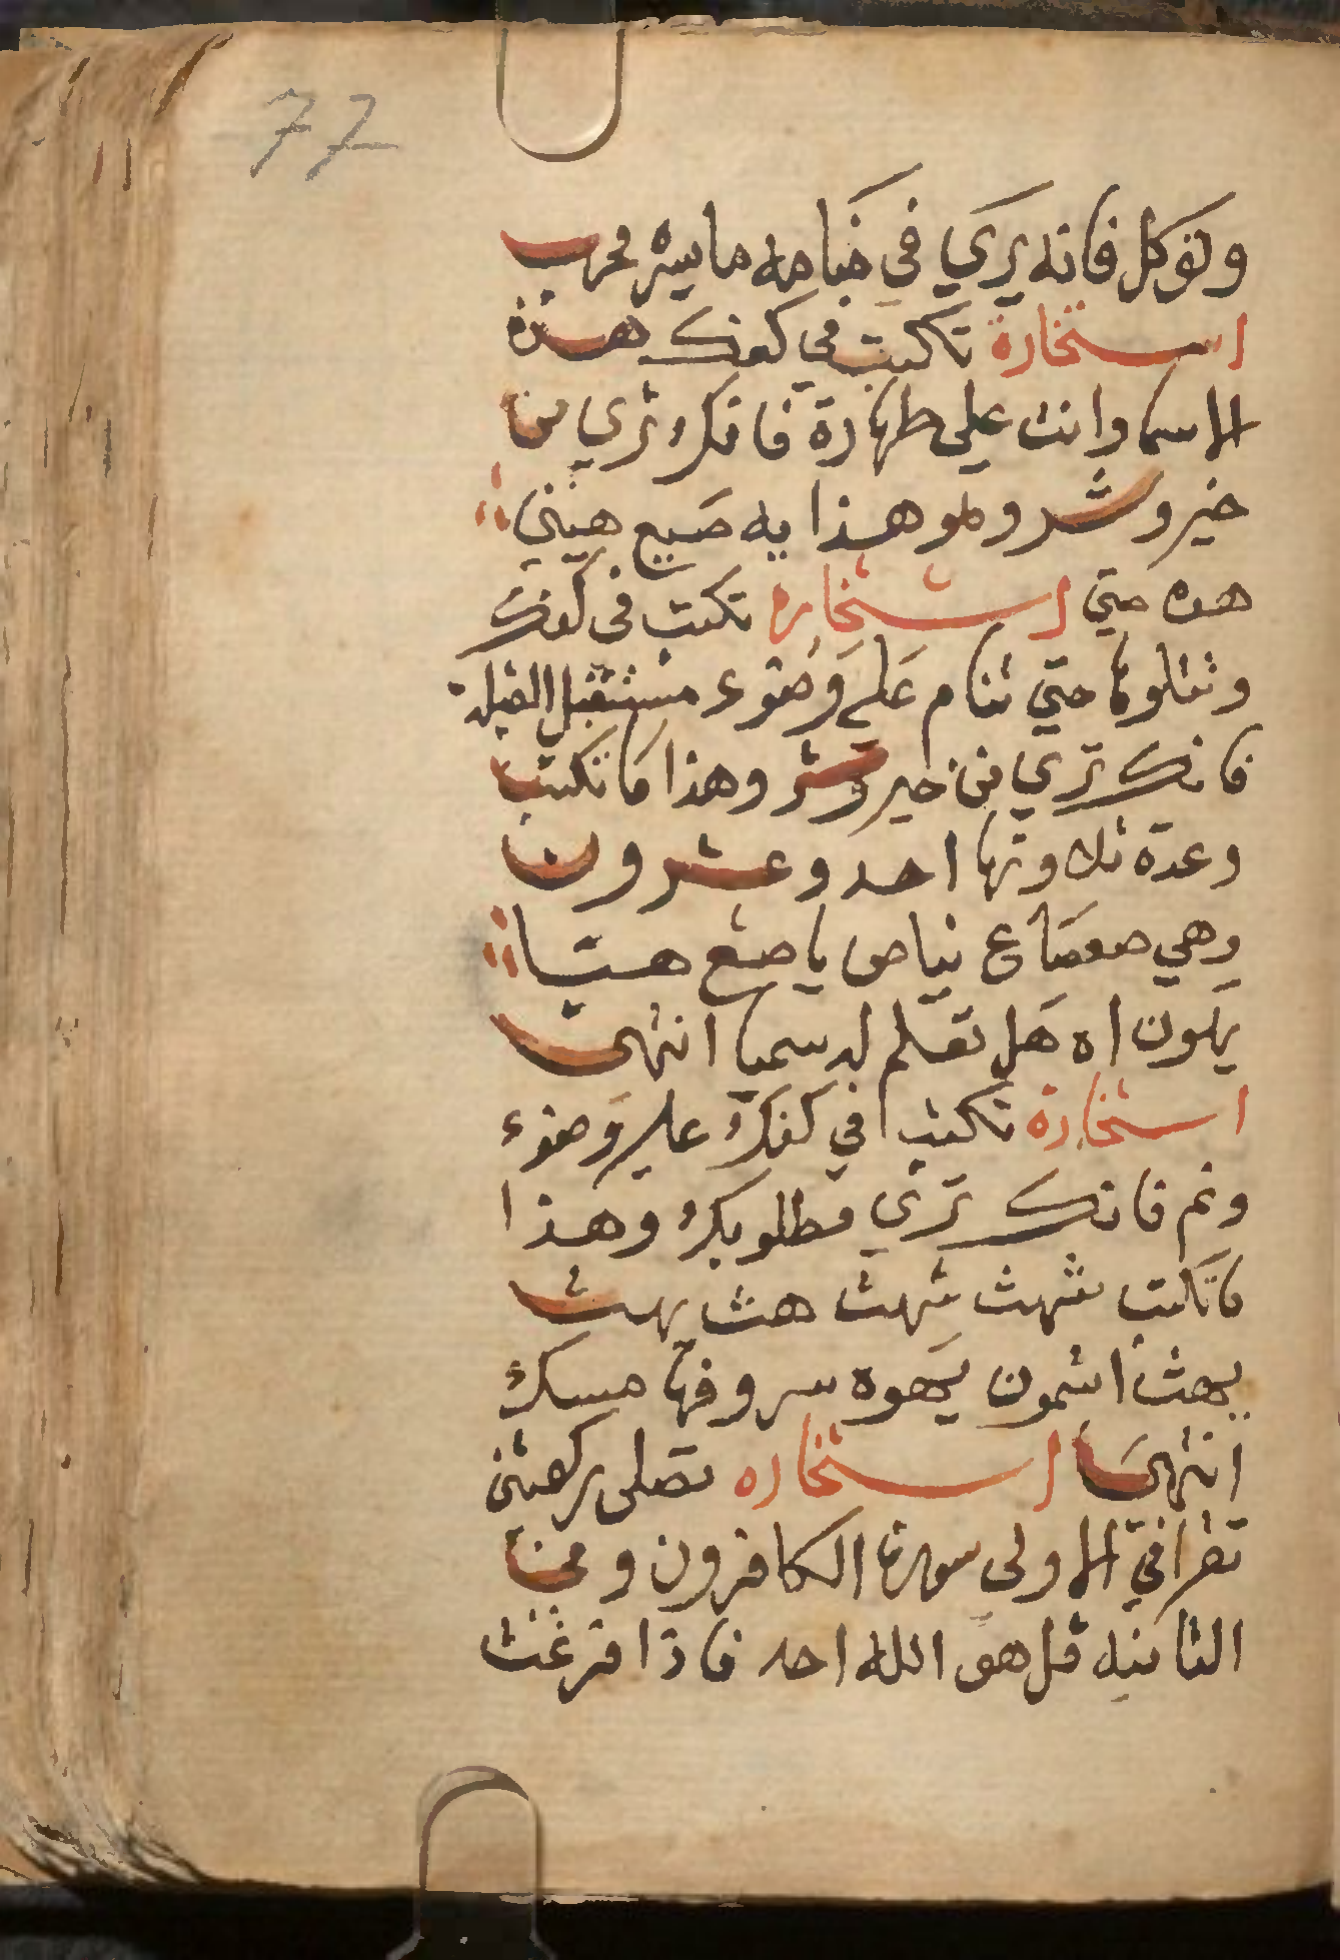 77
وتوكل فانه يري في منامه ما يسره مجرب
استخارة تكتب في كفك هذه
الاسما وانت علي طهارة فانك تري من
خير وشر وهو هذا يه صيع هيني
هده حتي استخاره تكتب في كفك
وتتلوها حتي تنام علي وضوء مستقبل القبلة
فانك تري من خير وشر وهذا ما تكتب
وعدة تلاوتها احد وعشرون
وهي صعصاع نياص ياصع هيتا
يلون اه هل تعلم له سميا انتهى
استخارة تكتب في كفك علي وضوء
ونم فانك تري مطلوبك وهذا
ما تكتب شهث شهث هث يهث
يهث اشمون يهوه سر وفها مسك
انتهى استخاره تصلى ركعتين
تقرا في الاولى سورة الكافرون وفي
الثانيه قل هو الله احد فاذا فرغت